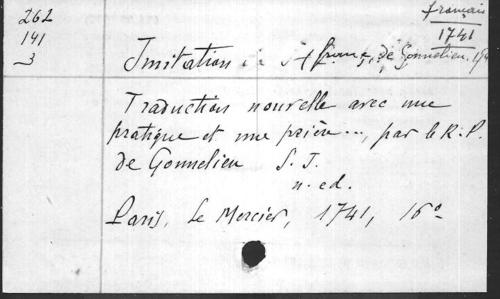 262
141
3
français
1741
Imitation
de Gonnelieu,
Traduction nouvelle avec une
pratique et une prière..., par le R.P.
de Gonnelieu S.J.
n. ed.
Paris, Le Mercier, 1741, 16°